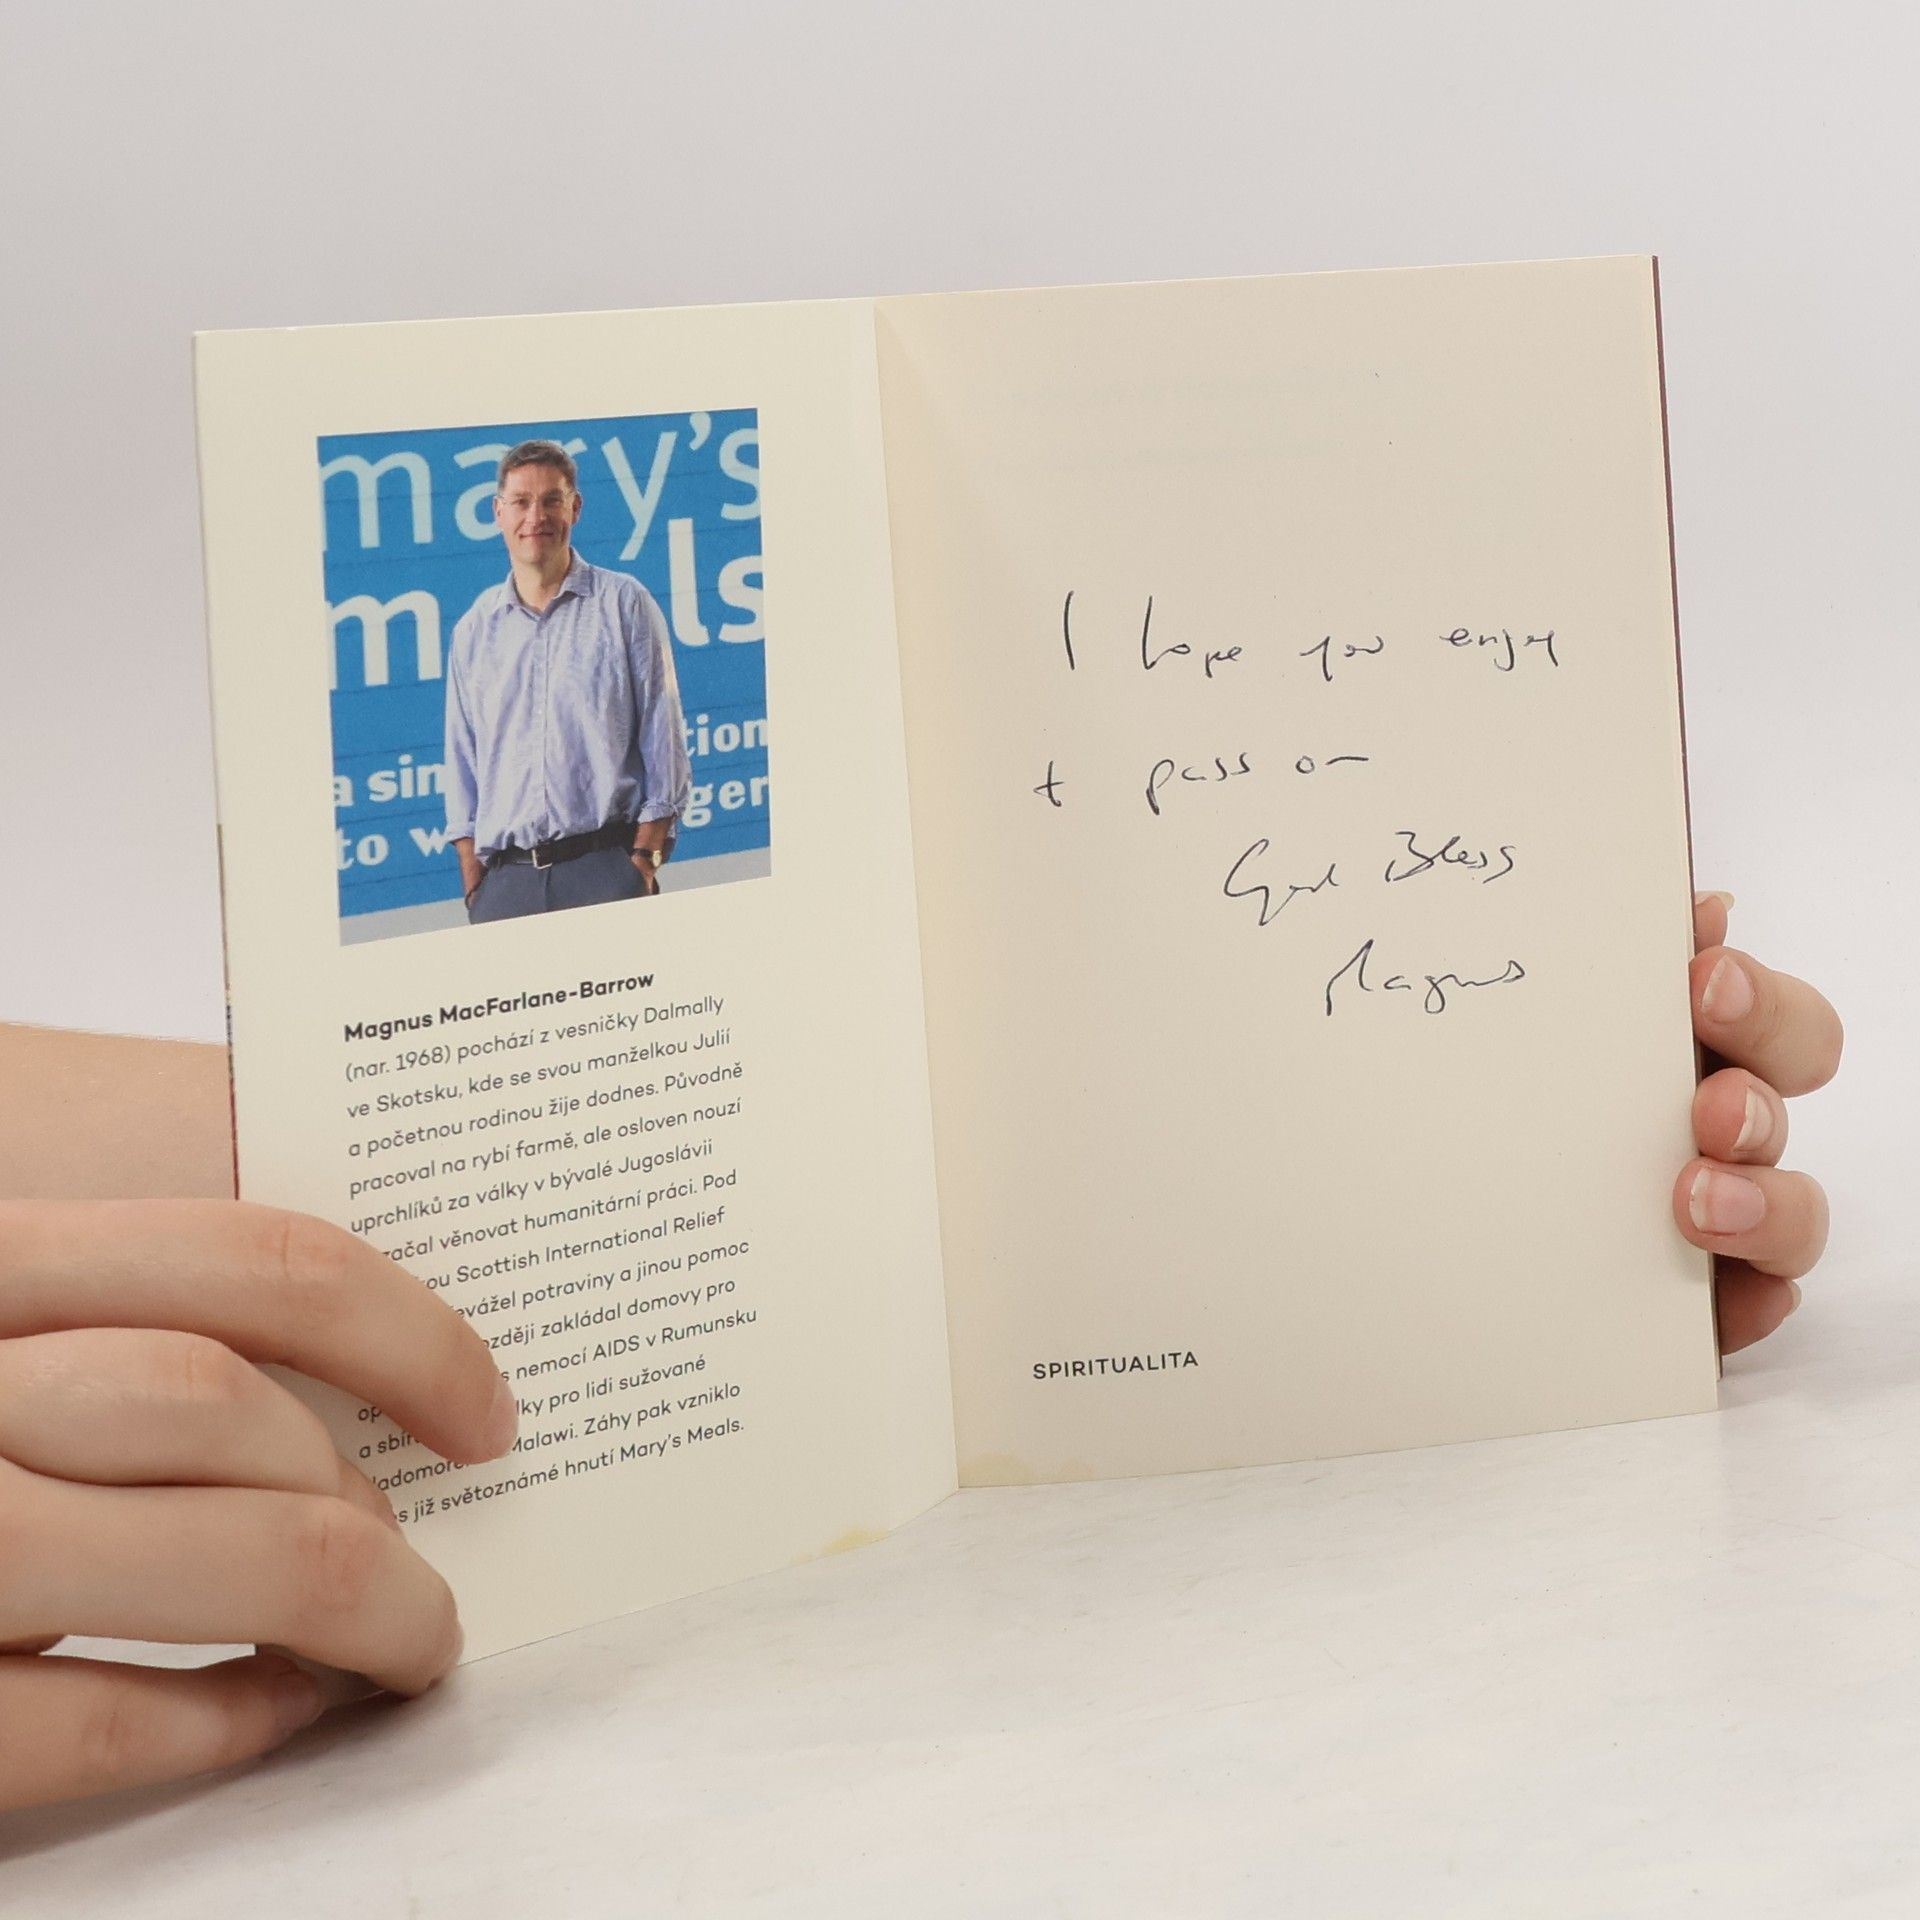 mary's
m ls
a sim tion
to w ger
Magnus MacFarlane-Barrow
(nar. 1968) pochází z vesničky Dalmally
ve Skotsku, kde se svou manželkou Julií
a početnou rodinou žije dodnes. Původně
pracoval na rybí farmě, ale osloven nouzí
uprchlíků za války v bývalé Jugoslávii
začal věnovat humanitární práci. Pod
kou Scottish International Relief
evážel potraviny a jinou pomoc
ozději zakládal domovy pro
s nemocí AIDS v Rumunsku
lky pro lidi sužované
a sbír Malawi. Záhy pak vzniklo
s již světoznámé hnutí Mary's Meals.
I hope you enjoy
+ pass on
God Bless
Magnus
SPIRITUALITA